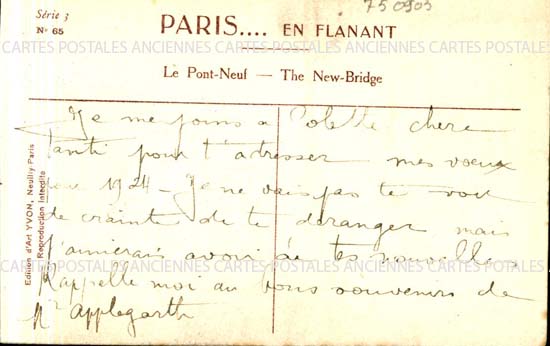 Série 3
N° 65
750903
PARIS.... EN FLANANT
CARTES POSTALES ANCIENNES CARTES POSTALES ANCIENNES CARTES POSTALES
Le Pont-Neuf — The New-Bridge
Je me joins a Colette chere
Tanti pour t'adresser mes voeux
pour 1924 - Je ne vais pas te voir
de crainte de te deranger mais
j'aimerais avoir de tes nouvelles
Rappelle moi au bons souvenirs de
Mr Applegarth
Edition d'Art YVON, Neuilly Paris
Reproduction Interdite
CARTES POSTALES ANCIENNES CARTES POSTALES ANCIENNES CARTES POSTALES